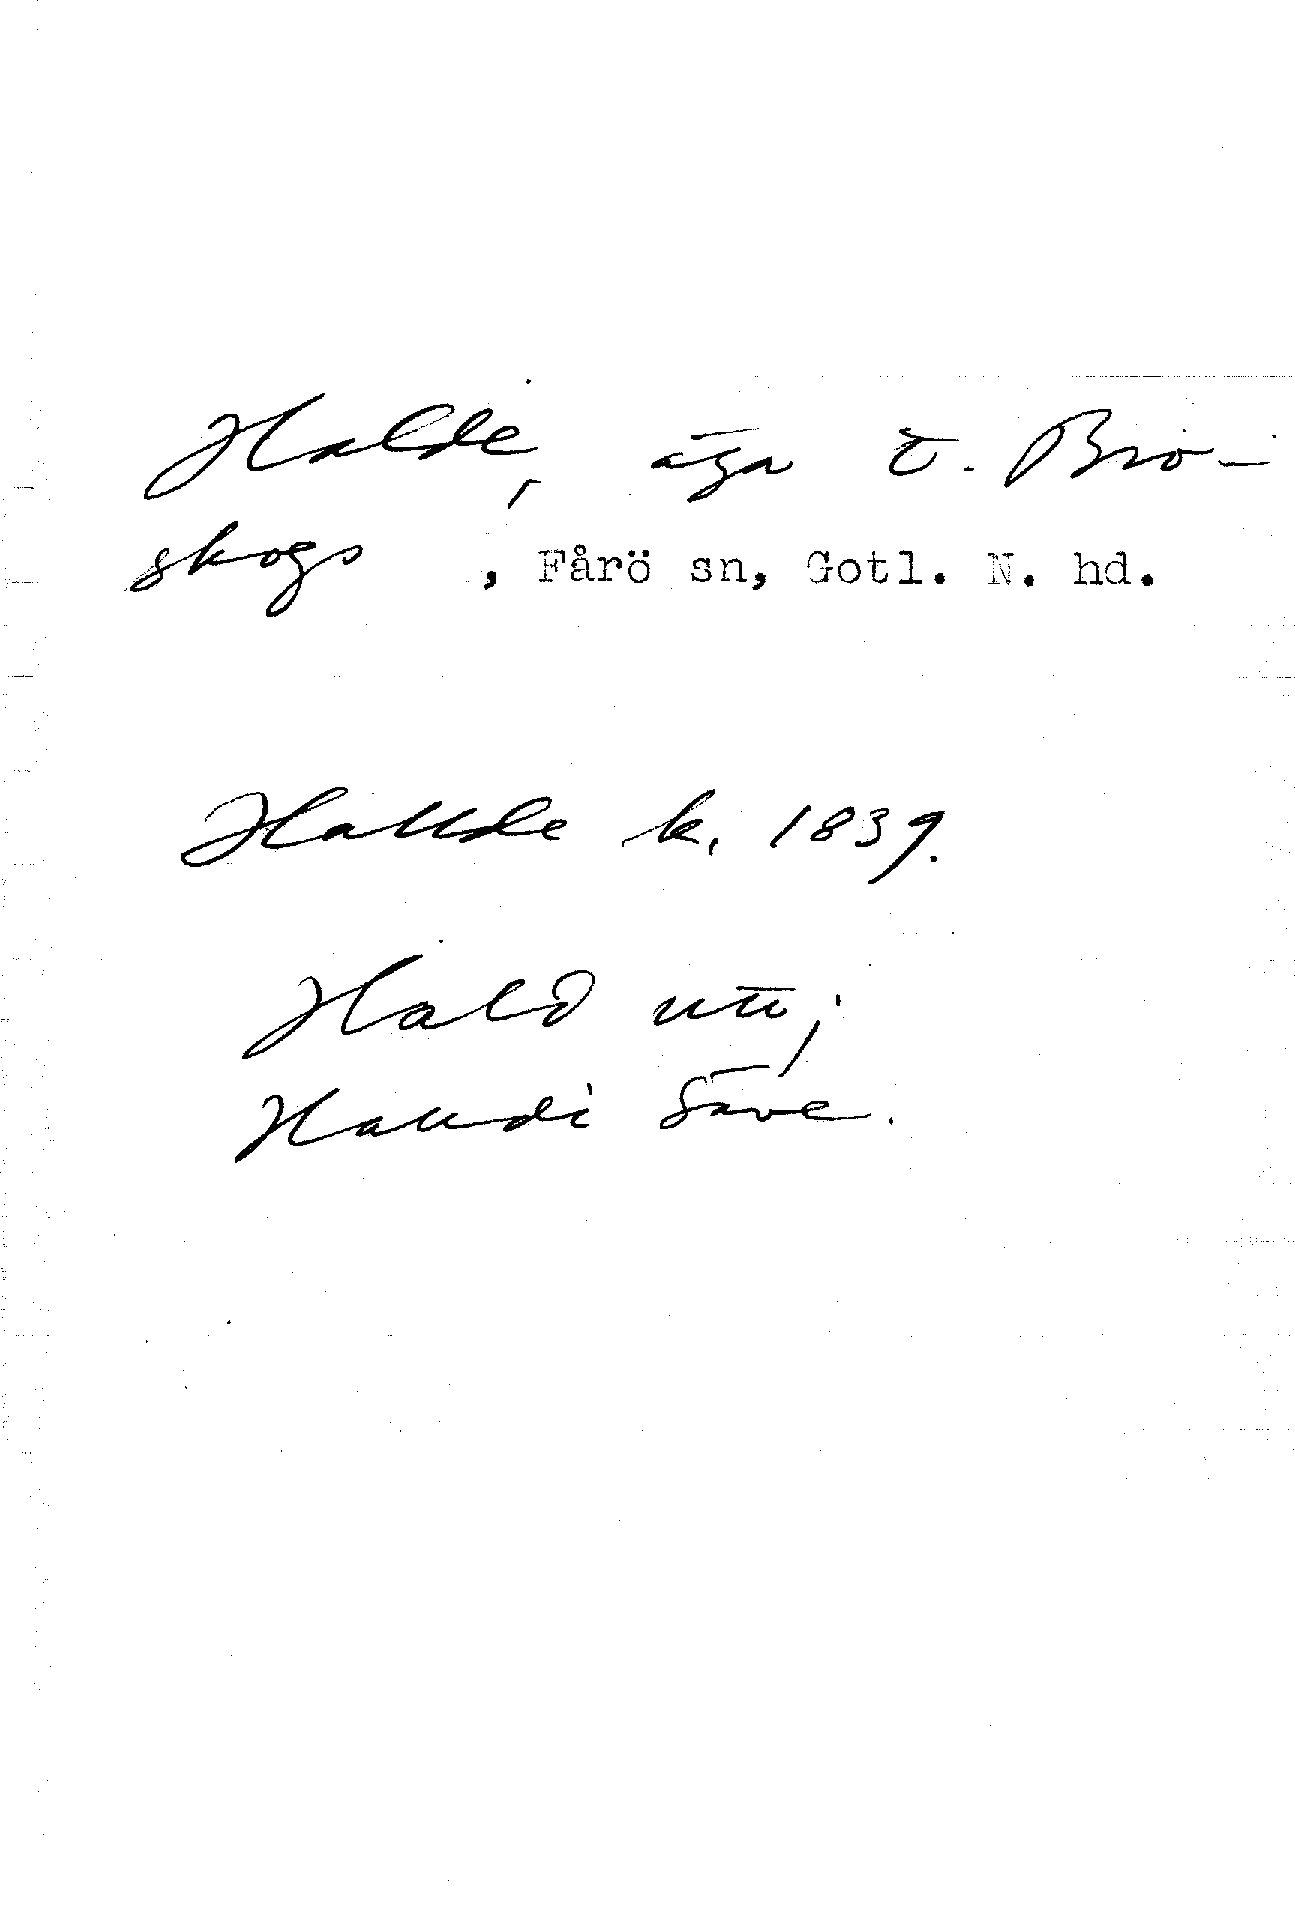 Halde, äga t. Bro-
skogs , Fårö sn, Gotl. N. hd.
Haude k. 1839.
Hald utt;
Haudi Säve.